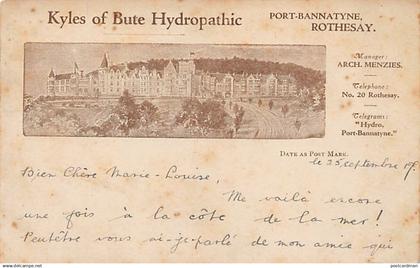 Kyles of Bute Hydropathic
PORT-BANNATYNE,
ROTHESAY.
Manager:
ARCH. MENZIES.
Telephone:
No. 20 Rothesay.
Telegrams:
"Hydro,
Port-Bannatyne."
DATE AS POST MARK.
le 25 septembre
Bien Chère Marie-Louise,
Me voilà encore
une fois à la côte de la mer!
Peutêtre vous ai-je parlé de mon amie qui